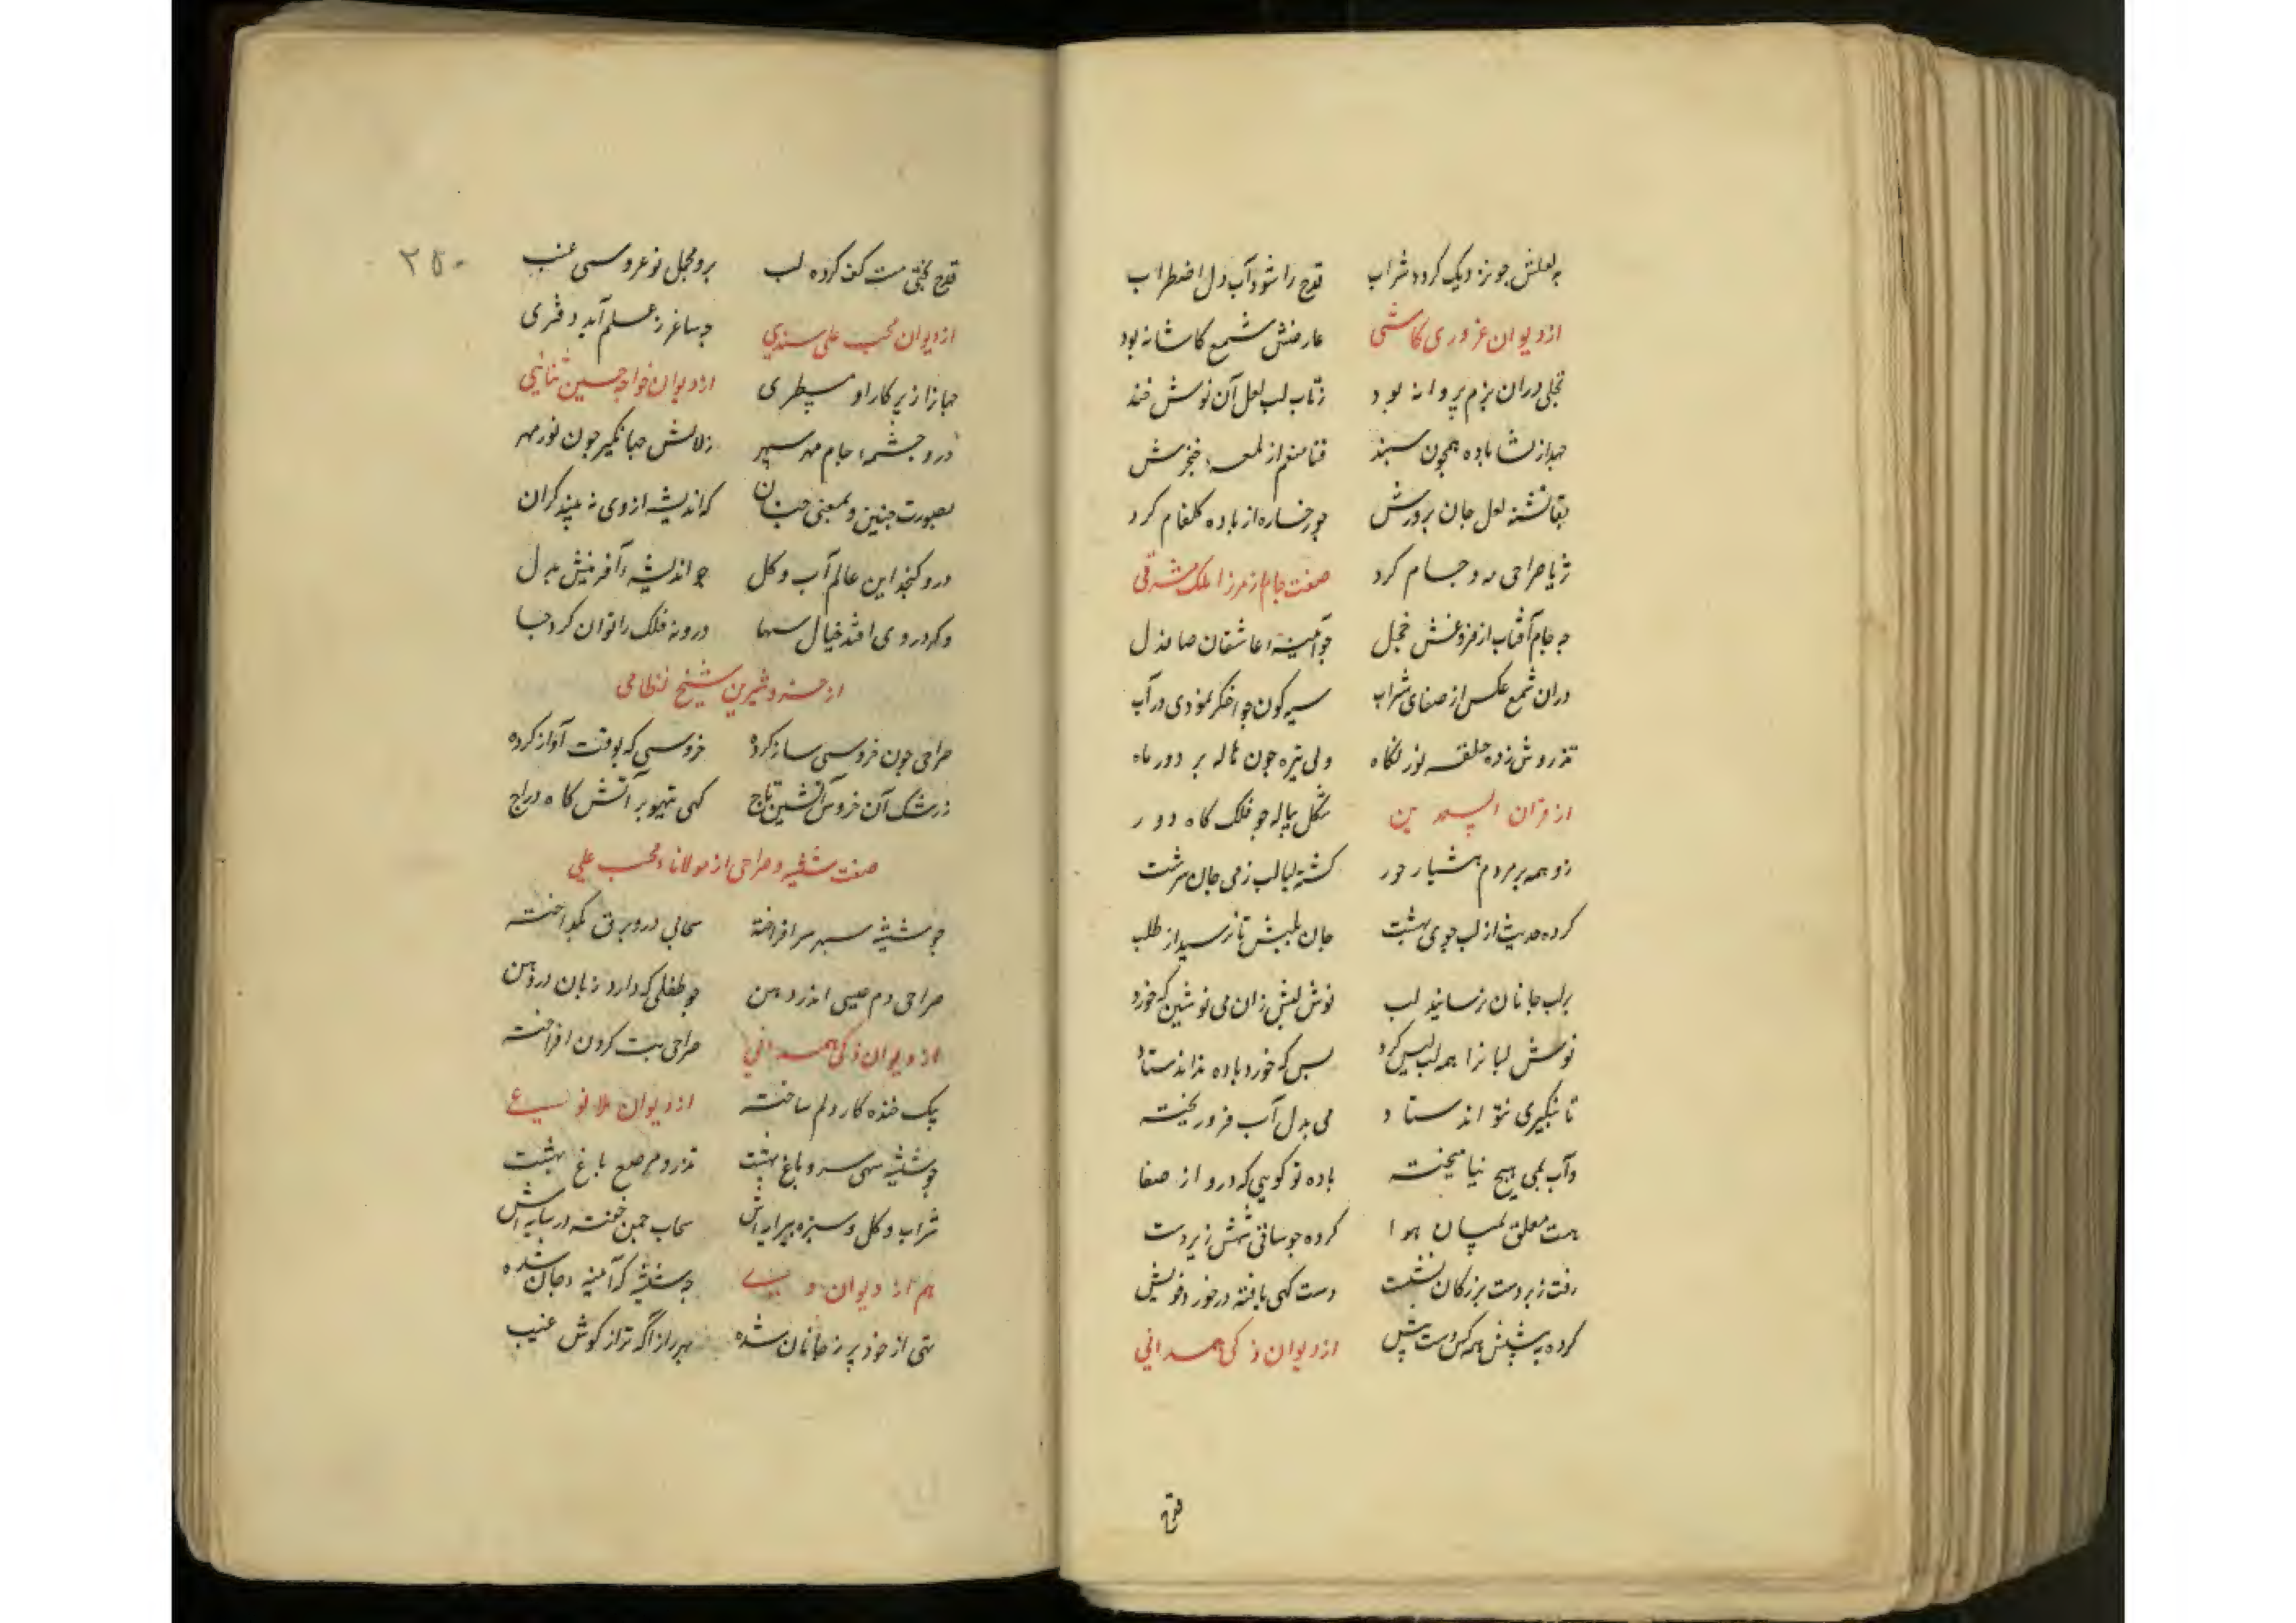 به لعلش چو نزدیک گردد شراب قدح را شود آب دل اضطراب
از دیوان غروری کاشی عارضش شمع کاشانه بود
تجلی دران بزم پروانه بود زتاب لب لعل آن نوش خند
جهد از نشا باده همچون سپند قتا منعم از لمعهٔ خنجرش
بقا تشنه لعل جان پرورش چو رخساره از باده گلفام کرد
ثریا صراحی مه و جام کرد صفت جام از میرزا ملک مشرقی
چه جام آفتاب از فروغش خجل چو آیینهٔ عاشقان صاف دل
دران شمع عکس از صفای شراب سیه گون چو اخگر نمودی در آب
زده حلقه نور نگاه ولی تیره چون هاله بر دور ماه
از قران السعدین شکل پیاله چو فلک گاه دور
زو همه بر مردم هشیار جور گشته لبالب ز می جان سرشت
کرده حدیث از لب جوی بهشت جان طلبش تا نرسید از طلب
بر لب جانان نرسانید لب نوش لبش زان می نوشین که خورد
نوش لبانرا همه لب لیس کرد بس که خورد باده نداند ستاد
تا نگیری نتواند ستاد می بدل آب فرو ریخته
وآب بمی هیچ نیامیخته باده تو گویی که درو از صفا
هست معلق بمیان هوا کرده چو ساقی شهش زیر دست
رفت زبردست بزرگان نشست دست کهی یافته در خورد خویش
کرده به پیشش همه کس دست پیش از دیوان ذکی همدانی
قدح
۲۵۰
قدح بختی مست کف کرده لب برو محمل نو عروسی عنب
از دیوان محب علی سندی چه ساغر ز علم آمد دفتری
جهانرا ز پرکار او مسطری از دیوان خواجه حسین ثنائی
درو چشمهٔ جام مهر سپهر زلالش جهانگیر چون نور مهر
بصورت چنین و بمعنی چنان که اندیشه ازوی نه بیند کران
درو گنجد این عالم آب و گل چو اندیشهٔ آفرینش بدل
وگر در وی افتد خیال سها درو نه فلک را توان کرد جا
از خسرو شیرین شیخ نظامی
صراحی چون خروسی ساز کرده خروسی که بوقت آواز کرده
ز رشک آن خروس آتشین تاج گهی تیهو بر آتش گاه دراج
صفت شیشه و صراحی از مولانا محب علی
چو شیشه سپهر سر افراخته سحابی درو برق بگداخته
صراحی دم عیسی اندر دهن چو طفلی که دارد زبان در دهن
از دیوان ذکی همدانی صراحی بت گردن افراخته
بیک خنده کار دلم ساخته از دیوان ملا نوعی
چو شیشه سهی سرو باغ بهشت تذرو مرصع باغ بهشت
شراب و گل و سبزه پیرایه‌اش سحاب چمن خفته در سایه‌اش
هم از دیوان و چه شیشه که آیینهٔ جان شده
تهی از خود پر ز جانان شده بهر راز آگه تر از گوش غیب